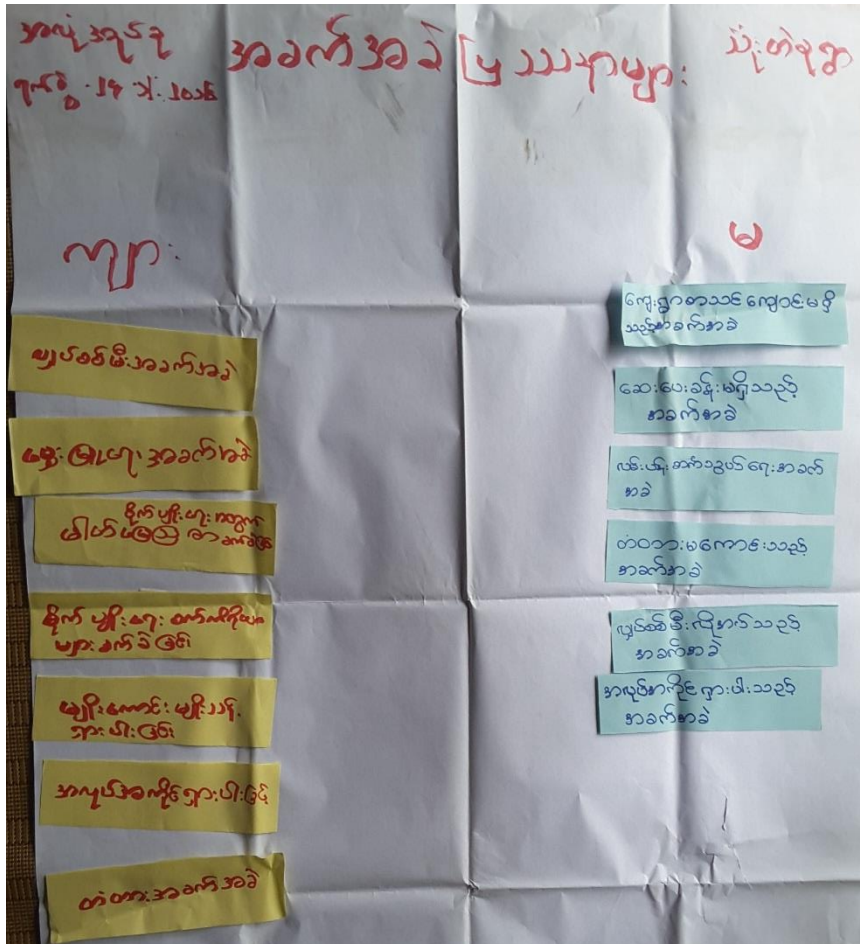 အခက်အခဲ ပြဿနာများ
သုံးတဲစုရွာ
ကျား
လျှပ်စစ်မီးအခက်အခဲ
မွေးမြူရေးအခက်အခဲ
စိုက်ပျိုးရေးအတွက်
စိုက်ပျိုးရေး
များခက်ခဲခြင်း
မျိုးကောင်းမျိုးသန့်
ရှားပါးခြင်း
အလုပ်အကိုင်ရှားပါးခြင်း
တံတားအခက်အခဲ
မ
ကျေးရွာစာသင်ကျောင်းမရှိ
သည့်အခက်အခဲ
ဆေးပေးခန်းမရှိသည့်
အခက်အခဲ
လမ်းပန်းဆက်သွယ်ရေးအခက်
အခဲ
တံတားမကောင်းသည့်
အခက်အခဲ
လျှပ်စစ်မီးလိုအပ်သည့်
အခက်အခဲ
အလုပ်အကိုင်ရှားပါးသည့်
အခက်အခဲ